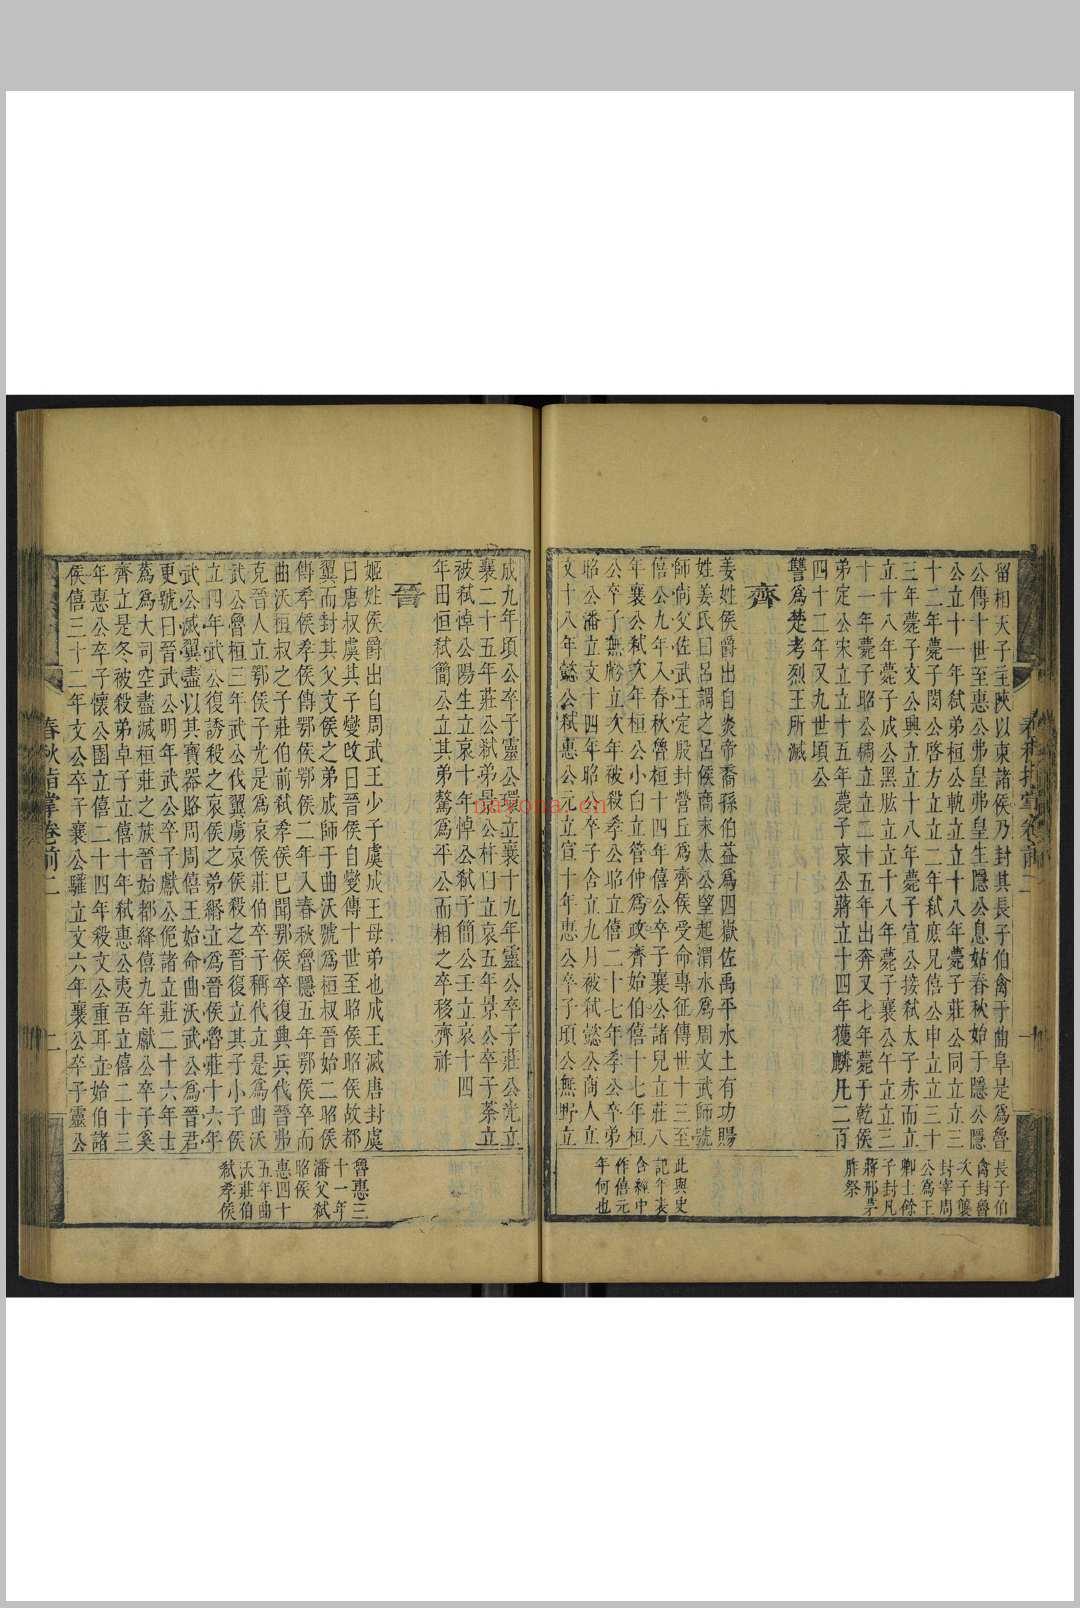 留相天子主陝以東諸侯乃封其長子伯禽于曲阜是爲魯
公傳十世至惠公弗皇弗皇生隱公息姑春秋始于隱公隱
公立十一年弑弟桓公軌立立十八年薨子莊公同立立三
十二年薨子閔公啓方立立二年弑庶兄僖公申立立三十
三年薨子文公興立立十八年薨子宣公接弑太子赤而立
立十八年薨子成公黑肱立立十八年薨子襄公午立立三
十一年薨子昭公稠立立二十五年出奔又七年薨于乾侯
弟定公宋立立十五年薨子哀公蔣立十四年獲麟凡二百
四十二年又九世頃公
讐爲楚考烈王所滅
長子伯
禽封魯
次子襲
封宰周
公爲王
卿士餘
子封凡
蔣邢茅
胙祭
齊
姜姓侯爵出自炎帝裔孫伯益爲四嶽佐禹平水土有功賜
姓姜氏曰呂謂之呂侯商末太公望起渭水爲周文武師號
師尚父佐武王定殷封營丘爲齊侯受命專征傳世十三至
僖公九年入春秋魯桓十四年僖公卒子襄公諸兒立莊八
年襄公弑次年桓公小白立管仲爲政齊始伯僖十七年桓
公卒子無虧立次年被殺孝公昭立僖二十七年孝公卒弟
昭公潘立文十四年昭公卒子舍立九月被弑懿公商人立
文十八年懿公弑惠公元立宣十年惠公卒子頃公無野立
此與史
記年表
合經中
作僖元
年何也
成九年頃公卒子靈公環立襄十九年靈公卒子莊公光立
襄二十五年莊公弑弟景公杵臼立哀五年景公卒子荼立
被弑悼公陽生立哀十年悼公弑子簡公壬立哀十四
年田恒弑簡公立其弟驁爲平公而相之卒移齊祚
晉
姬姓侯爵出自周武王少子虞成王母弟也成王滅唐封虞
曰唐叔虞其子燮改曰晉侯自燮傳十世至昭侯昭侯故都
翼而封其父文侯之弟成師于曲沃號爲桓叔晉始二昭侯
傳孝侯孝侯傳鄂侯鄂侯二年入春秋魯隱五年鄂侯卒而
曲沃桓叔之子莊伯前弑孝侯巳聞鄂侯卒復興兵伐晉弗
克晉人立鄂侯子光是爲哀侯莊伯卒子稱代立是爲曲沃
武公魯桓三年武公伐翼虜哀侯殺之晉復立其子小子侯
立四年武公復誘殺之哀侯之弟緡立爲晉侯魯莊十六年
武公滅翼盡以其寶器賂周周僖王始命曲沃武公爲晉君
更號曰晉武公明年武公卒子獻公佹諸立莊二十六年士
蔿爲大司空盡滅桓莊之族晉始都絳僖九年獻公卒子奚
齊立是冬被殺弟卓子立僖十年弑惠公夷吾立僖二十三
年惠公卒子懷公圉立僖二十四年殺文公重耳立始伯諸
侯僖三十二年文公卒子襄公驩立文六年襄公卒子靈公
魯惠三
十一年
潘父弑
昭侯
惠四十
五年曲
沃莊伯
弑孝侯
春秋指掌卷前二
二
navona.cn